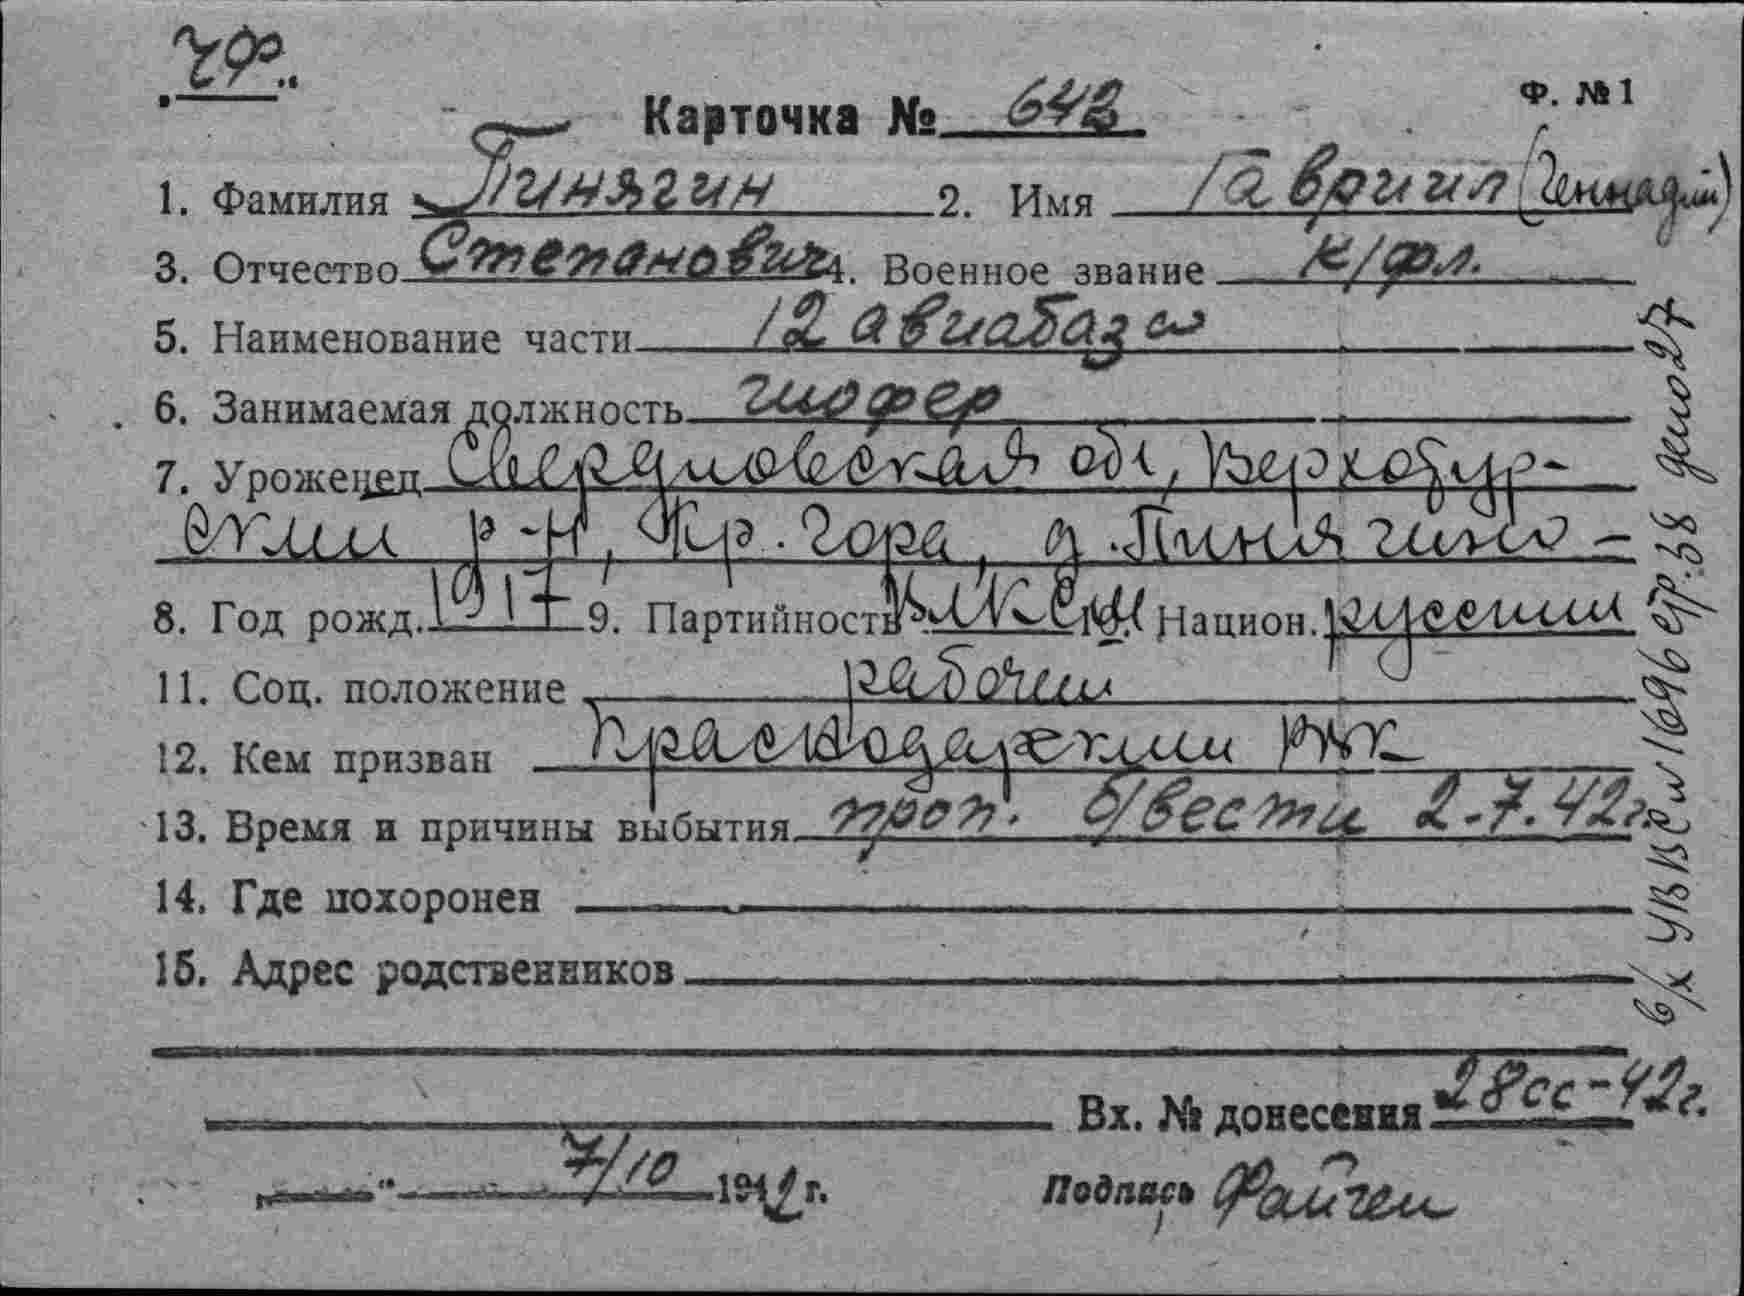 ЧФ..
Ф. №1
Карточка № 642
1. Фамилия Пинягин 2. Имя Гавриил (Геннадий)
3. Отчество Степанович 4. Военное звание к/фл.
5. Наименование части 12 авиабаза
6. Занимаемая должность шофер
7. Уроженец Свердловская обл, Верхотур-
ский р-н, Кр. гора, д. Пинягино -
8. Год рожд. 1917 9. Партийность ВЛКСМ 10. Национ. русский
11. Соц. положение рабочий
12. Кем призван Краснодарский РВК
13. Время и причины выбытия проп. б/вести 2.7.42г.
14. Где похоронен
15. Адрес родственников
Вх. № донесения 28сс-42г.
„ " 7/10 1942 г. Подпись
в/х УВВСм 1696 стр. 38 дело 27